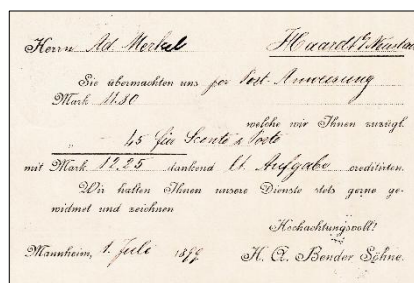 Herrn Ad. Merkel Haardt b/ Neustadt
Sie übermachten uns per Post-Anweisung
Mark 11.80
welche wir Ihnen zuzügl.
" –.45 für Sconto & Porto
mit Mark 12.25 dankend lt. Aufgabe creditirten.
Wir halten Ihnen unsere Dienste stets gerne ge-
widmet und zeichnen
Hochachtungsvoll!
Mannheim, 1. Juli 1899 H. A. Bender Söhne.